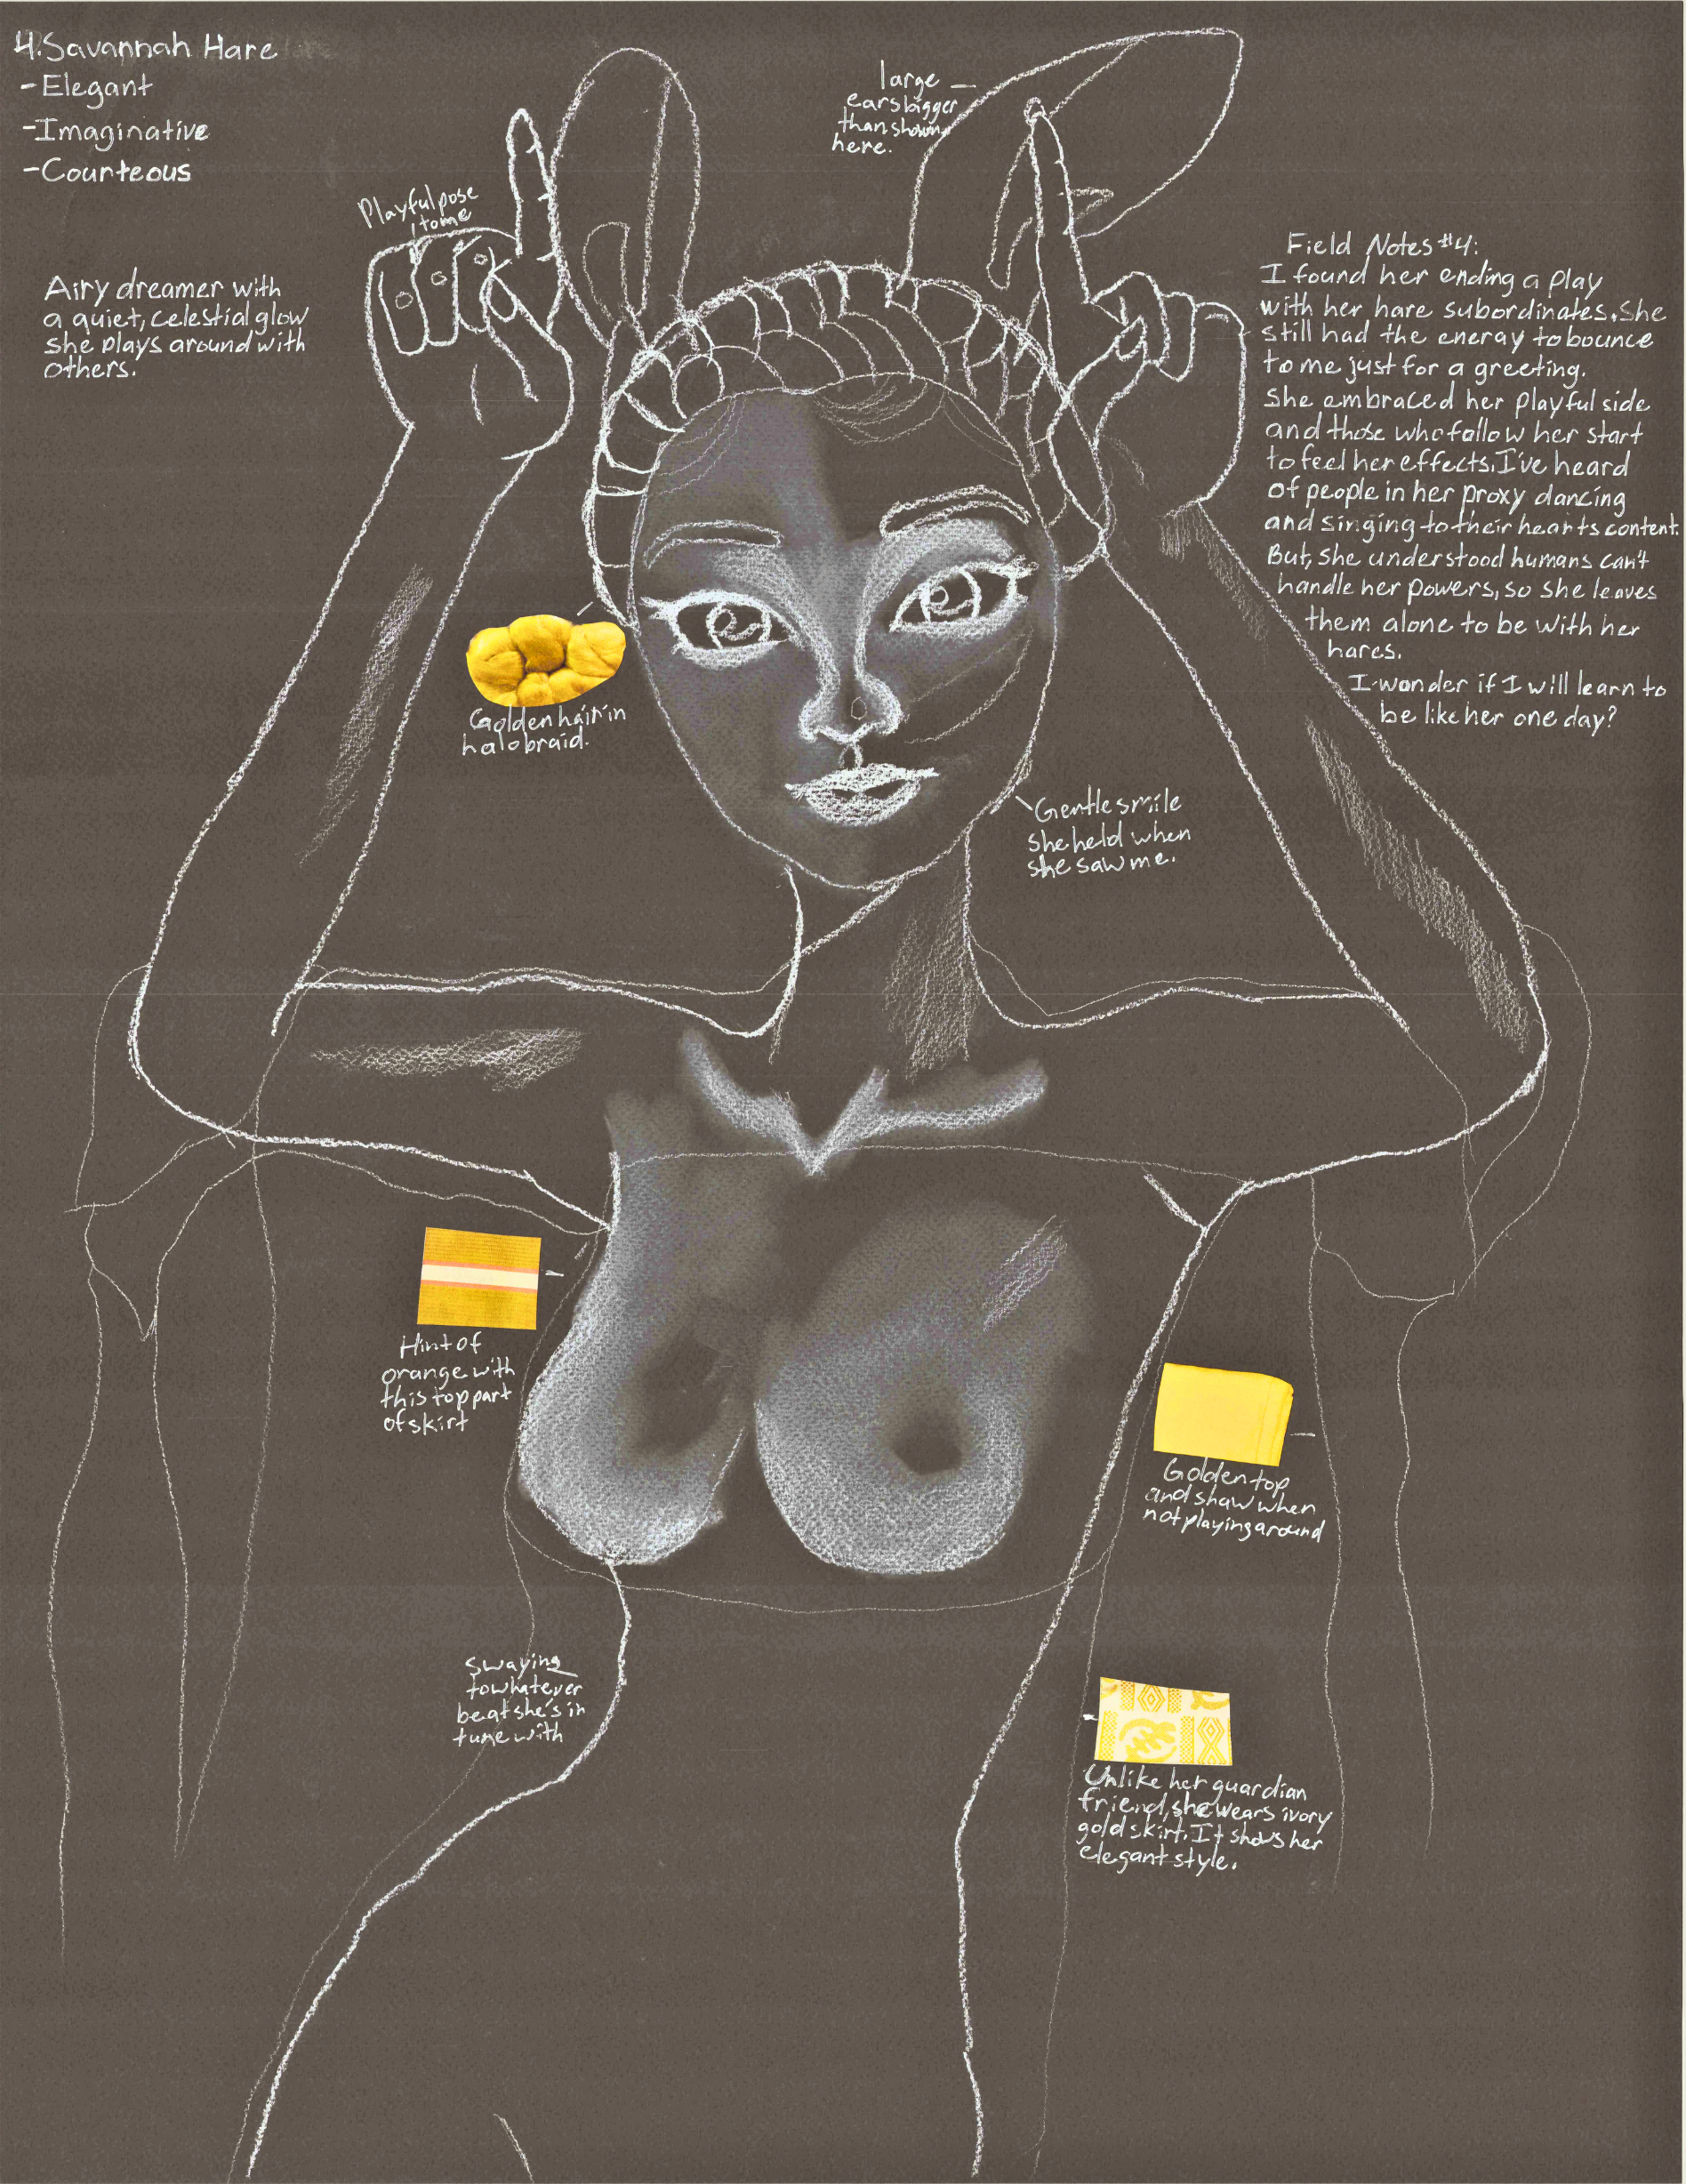 4. Savannah Hare
- Elegant
- Imaginative
- Courteous
Airy dreamer with
a quiet, celestial glow
she plays around with
others.
Playful pose
to me
large
ears bigger
than shown
here.
Field Notes #4:
I found her ending a play
with her hare subordinates. She
still had the energy to bounce
to me just for a greeting.
She embraced her playful side
and those who follow her start
to feel her effects. I've heard
of people in her proxy dancing
and singing to their hearts content.
But, she understood humans can't
handle her powers, so she leaves
them alone to be with her
hares.
I wonder if I will learn to
be like her one day?
Golden hair in
halo braid.
Gentle smile
she held when
she saw me.
Hint of
orange with
this top part
of skirt
Golden top
and shaw when
not playing around
Swaying
to whatever
beat she's in
tune with
Unlike her guardian
friend, she wears ivory
gold skirt. It shows her
elegant style.